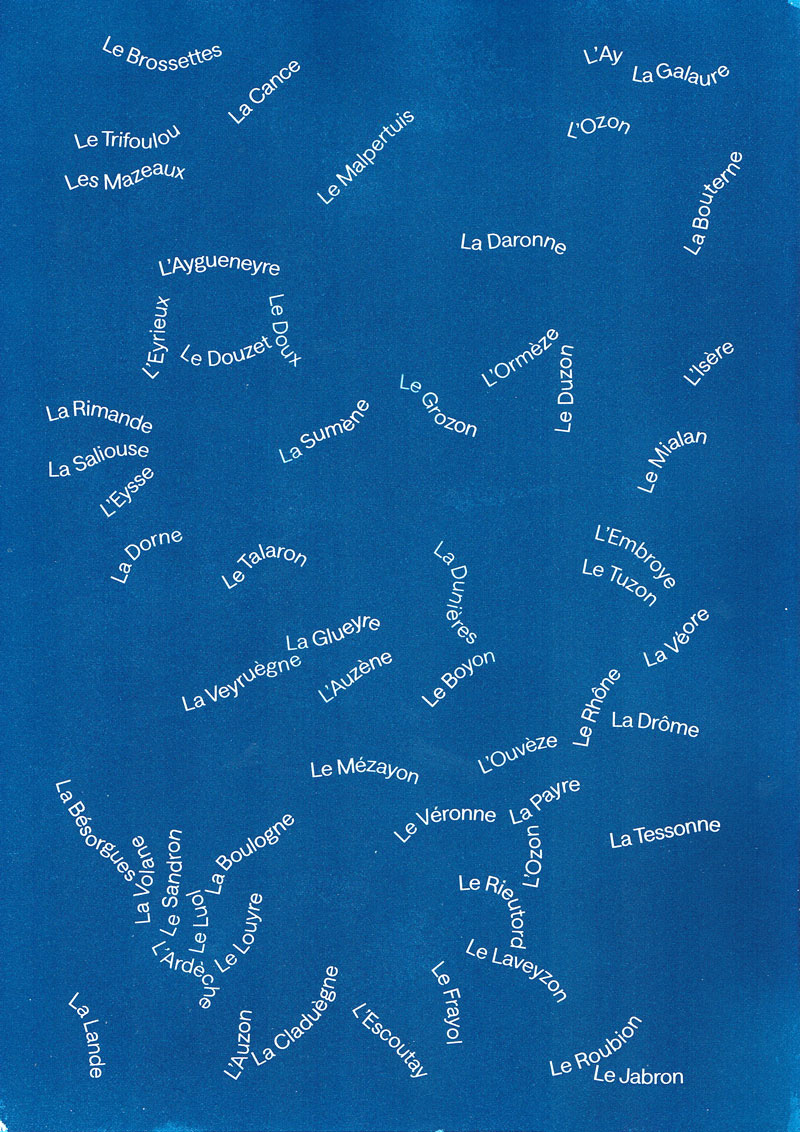 Le Brossettes
L'Ay
La Galaure
La Cance
Le Trifoulou
Le Malpertuis
L'Ozon
Les Mazeaux
La Bouterne
La Daronne
L'Aygueneyre
L'Eyrieux
Le Doux
Le Douzet
L'Ormèze
Le Duzon
L'Isère
La Rimande
Le Grozon
La Sumène
La Saliouse
Le Mialan
L'Eysse
La Dorne
Le Talaron
La Dunières
L'Embroye
Le Tuzon
La Glueyre
La Véore
La Veyruègne
L'Auzène
Le Boyon
Le Rhône
La Drôme
Le Mézayon
L'Ouvèze
La Bésorgues
La Volane
Le Sandron
La Boulogne
Le Véronne
La Payre
La Tessonne
L'Ozon
Le Luol
Le Louyre
Le Rieutord
L'Ardèche
Le Laveyzon
La Lande
L'Auzon
La Claduègne
L'Escoutay
Le Frayol
Le Roubion
Le Jabron